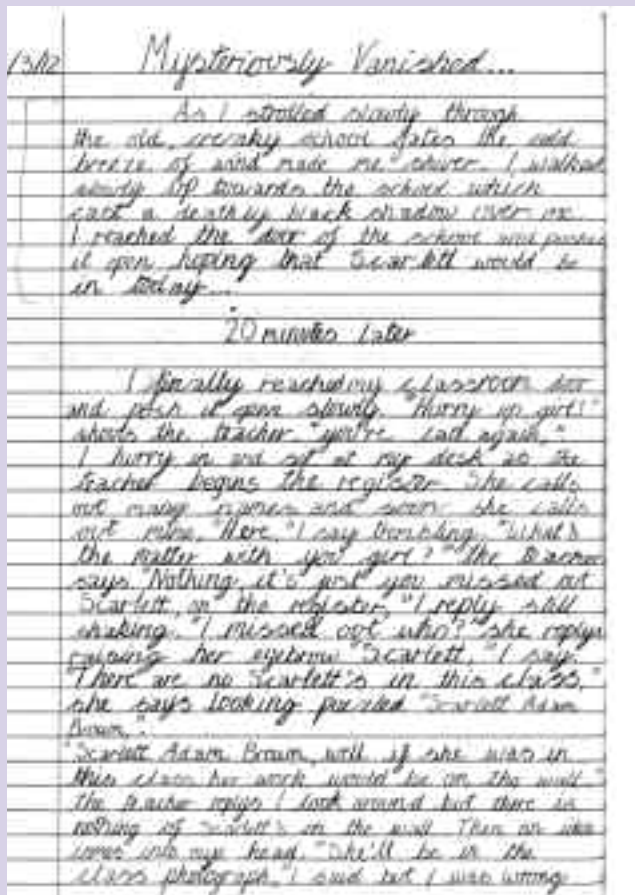 Mysteriously Vanished...
As I strolled slowly through
the old, creaky school gates the cold
breeze of wind made me shiver. I walked
slowly up towards the school which
cast a deathly black shadow over me.
I reached the door of the school and pushed
it open, hoping that Scarlett would be
in today...
20 minutes later
I finally reached my classroom door
and push it open slowly. "Hurry up girl!"
shouts the teacher "you're late again."
I hurry in and sit at my desk as the
teacher begins the register. She calls
out many names and soon she calls
out mine. "Here," I say trembling. "What's
the matter with you girl?" the teacher
says. "Nothing, it's just you missed out
Scarlett, on the register," I reply still
shaking. "I missed out who?" she replys
raising her eyebrow "Scarlett," I say.
"There are no Scarlett's in this class,"
she says looking puzzled "Scarlett Adam
Brown,".
"Scarlett Adam Brown, well if she was in
this class her work would be on the wall"
the teacher replys I look around but there is
nothing of Scarlett's on the wall Then an idea
comes into my head. "She'll be in the
class photograph," I said but I was wrong